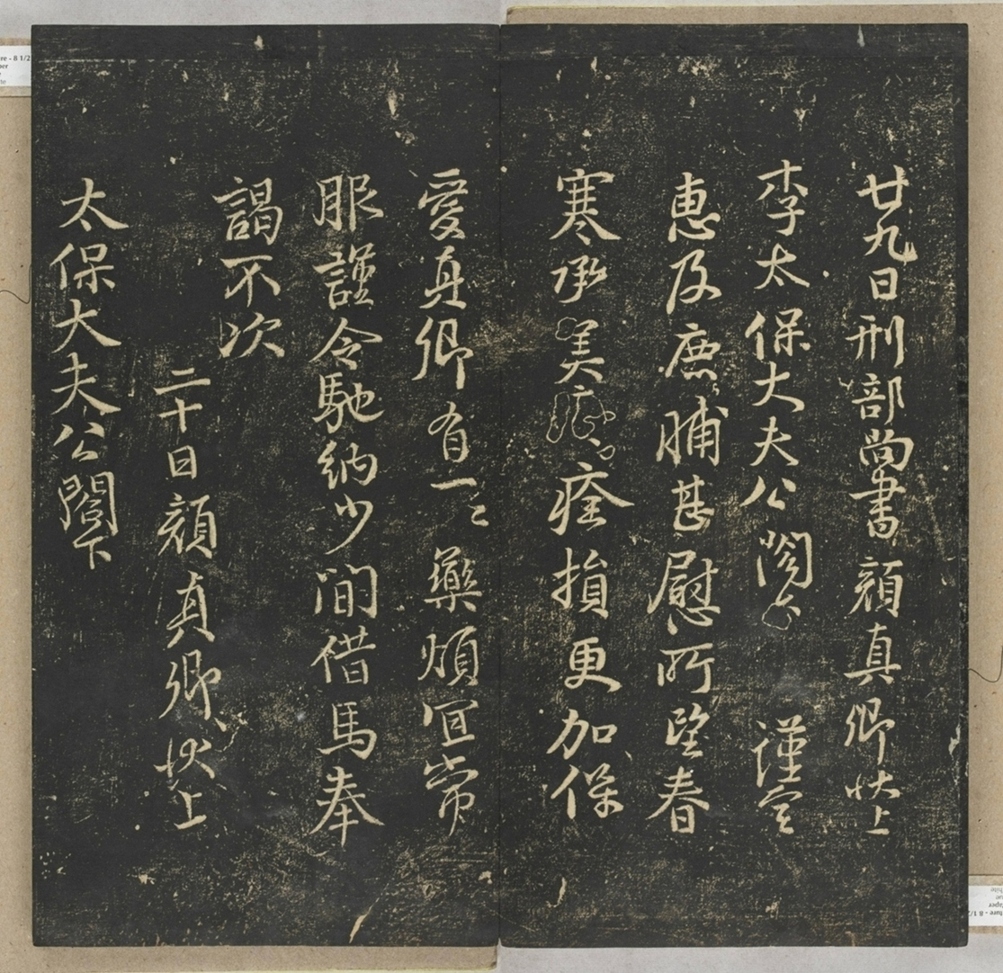 廿九日刑部尚書顔真卿状上
李太保大夫公閤下 謹空
惠及鹿脯甚慰所望春
寒承美疹痊損更加保
愛真卿有一二藥煩宜常
服謹令馳納少間借馬奉
謁不次
二十日顔真卿状上
太保大夫公閤下